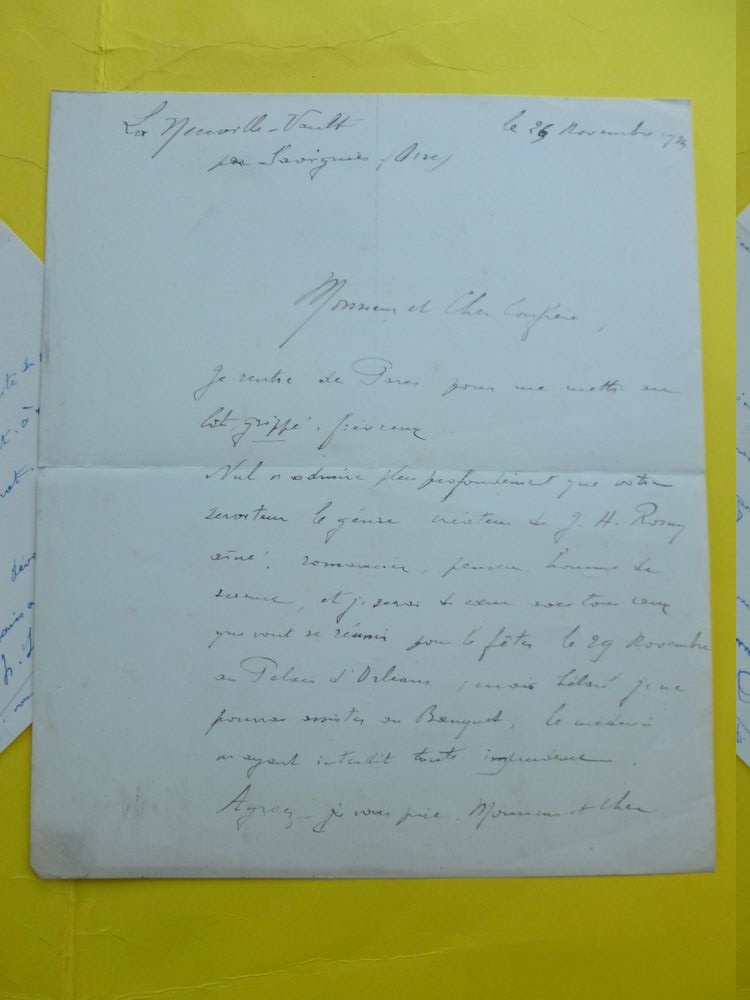 La Neuville-Vault
par Savignies (Oise)
le 26 Novembre 1924
Monsieur et Cher Confrère,
Je rentre de Paris pour me mettre au
lit, grippé, fiévreux.
Nul n'admire plus profondément que votre
serviteur le génie créateur de J. H. Rosny
aîné, romancier, penseur, homme de
science, et je serai de cœur avec tous ceux
qui vont se réunir pour le fêter le 29 Novembre
au Palais d'Orléans, mais hélas! je ne
pourrai assister au Banquet, le médecin
m'ayant interdit toute imprudence.
Agréez, je vous prie, Monsieur et Cher